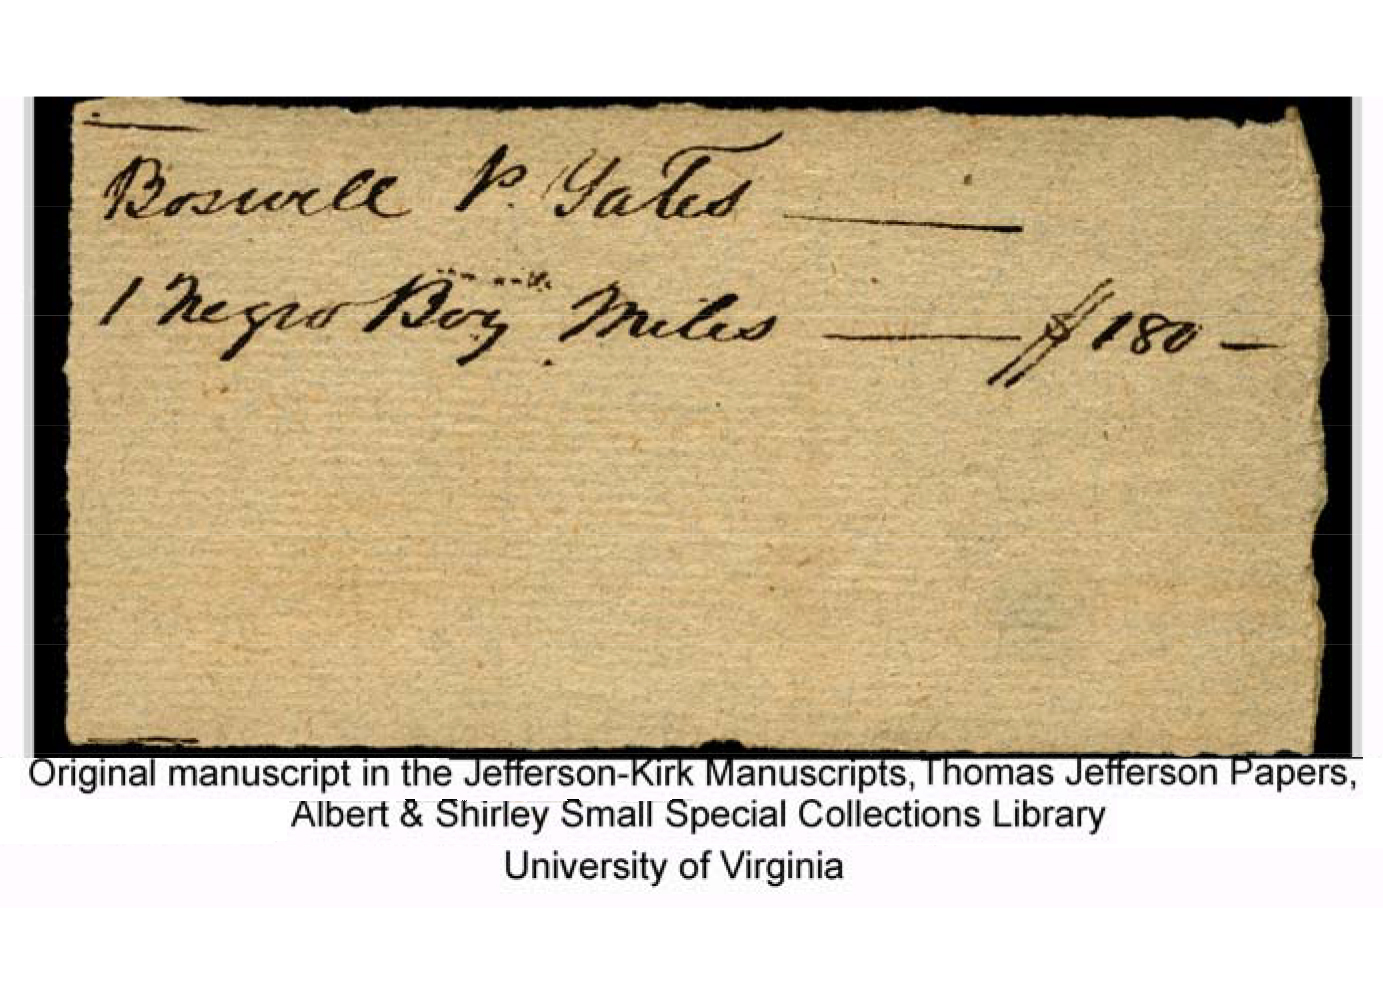 Boswell P. Yates ———
1 Negro Boy Miles ——— $180 —
Original manuscript in the Jefferson-Kirk Manuscripts, Thomas Jefferson Papers,
Albert & Shirley Small Special Collections Library
University of Virginia